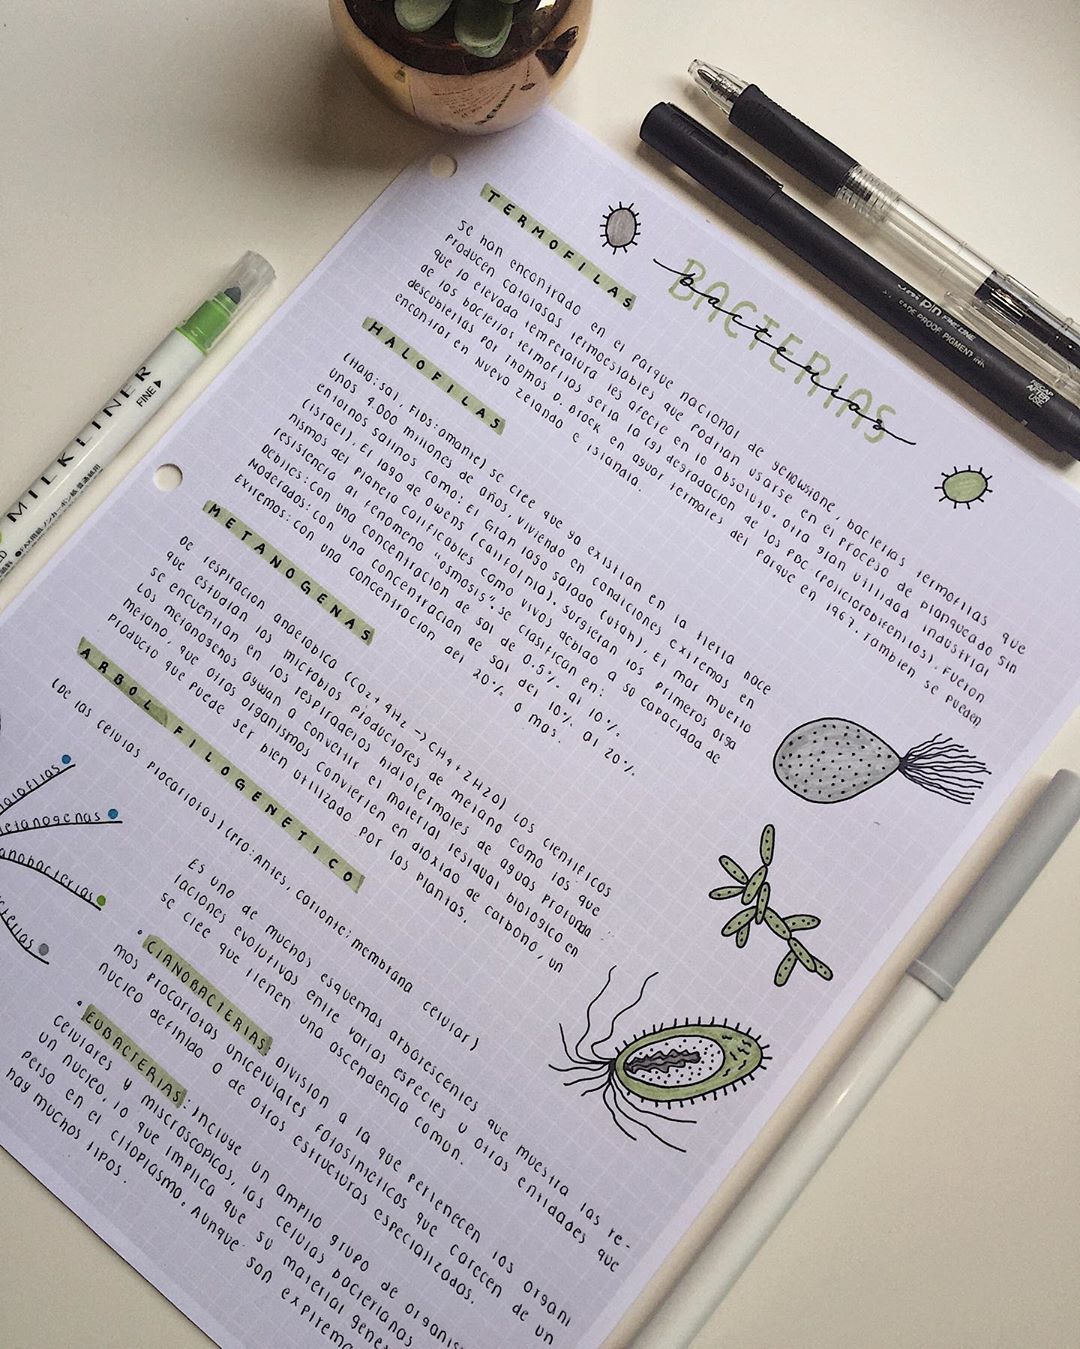 BACTERIAS
bacterias
TERMOFILAS
Se han encontrado en el parque nacional de yenowsione, bacterias termofilas que
producen catalasas termoestables que podrían usarse en el proceso de planqueado sin
que la elevada temperatura les afecte en lo absoluto. Otra gran utilidad industrial
de las bacterias termofilas sería la (g) degradación de los PBC (policlorobifenilos). Fueron
descubiertas por Thomas D. Brock en aguas termales del parque en 1967. También se pueden
encontrar en Nueva Zelanda e Islandia.
HALOFILAS
(Halo: sal, Filos: amante) se cree que ya existían en la tierra hace
unos 4.000 millones de años, viviendo en condiciones extremas en
entornos salinos como: El Gran lago salado (Utah), El mar muerto
(Israel), El lago de Owens (California). Surgieran los primeros orga
nismos del planeta calificables como vivos debido a su capacidad de
resistencia al fenómeno "osmosis". Se clasifican en:
Débiles: con una concentración de sal de 0.5% al 10%.
Moderados: con una concentración de sal del 10% al 20%.
Extremos: con una concentración del 20% o más.
METANOGENAS
De respiración anaeróbica (CO2 + 4H2 → CH4 + 2H2O) Los científicos
que estudian los microbios productores de metano como los que
se encuentran en los respiraderos hidrotermales de aguas profunda
Los metanógenos ayudan a convertir el material residual biológico en
metano, que otros organismos convierten en dióxido de carbono, un
producto que puede ser bien utilizado por las plantas.
ARBOL FILOGENETICO
(De las células procariotas) (Pro: Antes, carionte: membrana celular)
Es uno de muchos esquemas arbórescentes que muestra las re-
laciones evolutivas entre varias especies u otras entidades que
se cree que tienen una ascendencia común.
halofilas
metanogenas
anobacterias
cterias
• CIANOBACTERIAS: División a la que pertenecen los organi
mos procariotas unicelulares fotosintéticos que carecen de un
núcleo definido o de otras estructuras especializadas.
• EUBACTERIAS: Incluye un amplio grupo de organis
celulares y miscroscópicos, las células bacterianas
un núcleo, lo que implica que su material gene
perso en el citoplasma. Aunque son extrema
hay muchos tipos.
MILKLINER
FINE▶
uni pin FINE LINE
FADE PROOF PIGMENT INK
RECAP
AFTER
USE